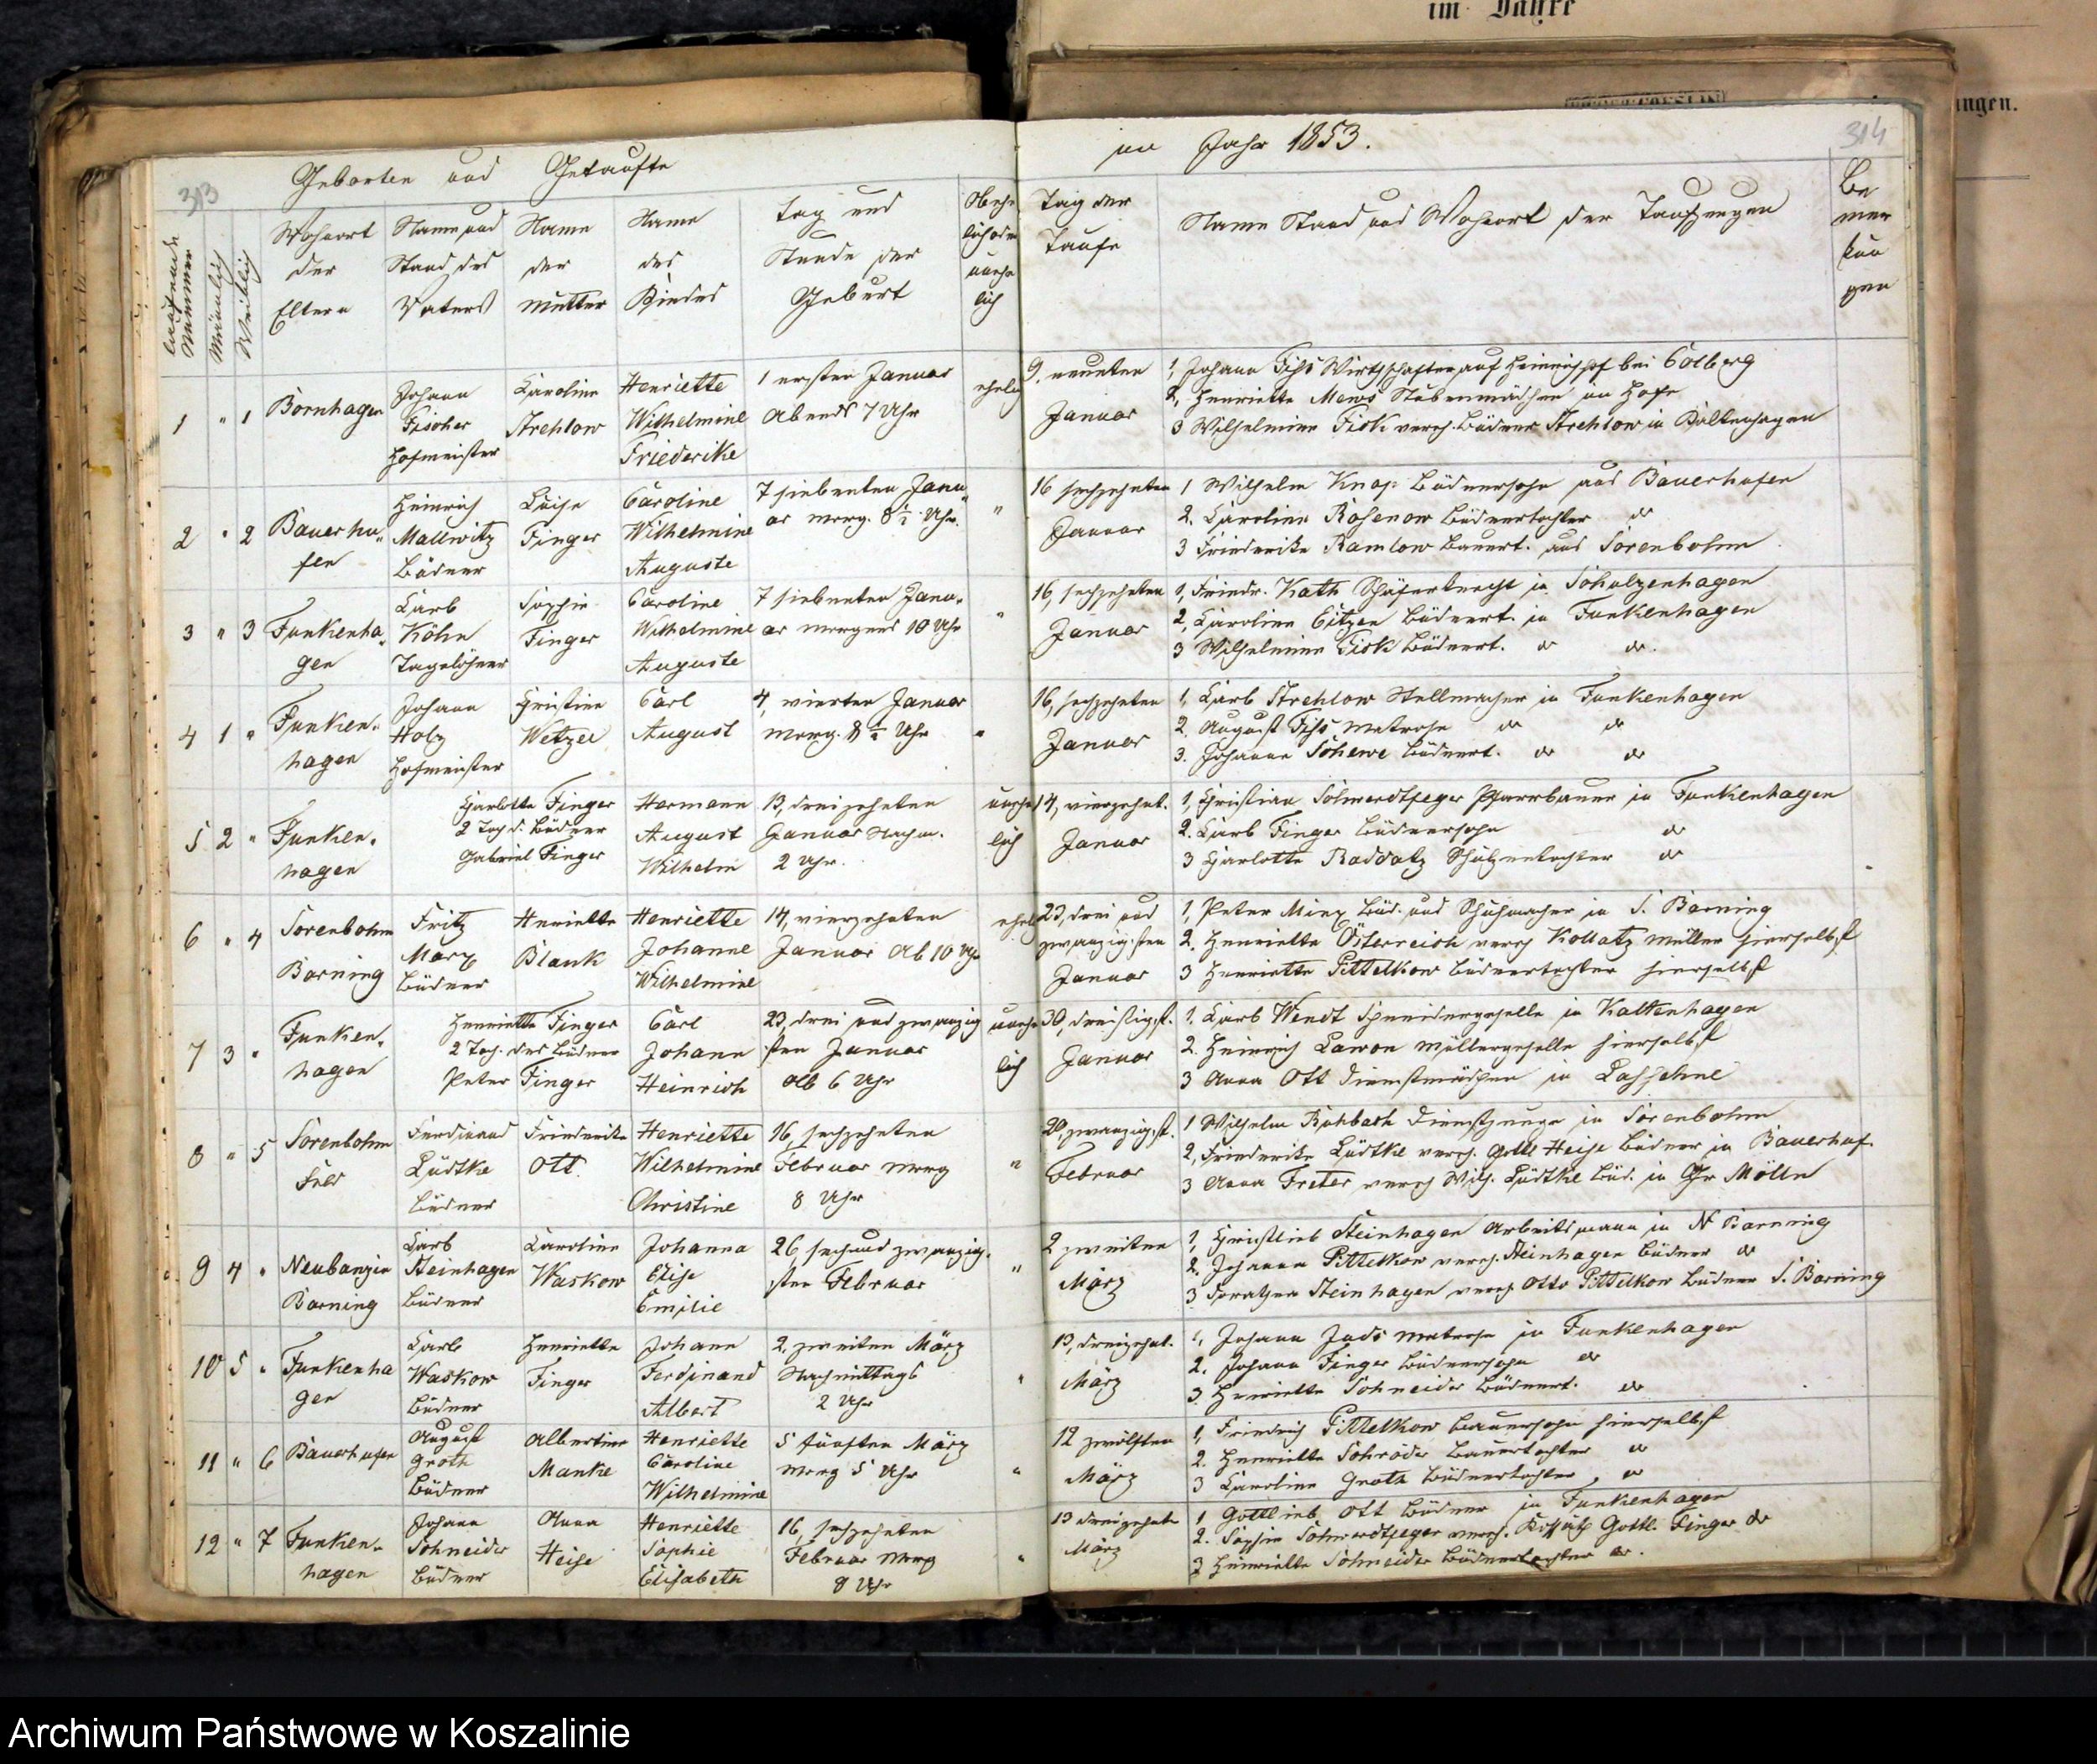 im Jahre
ungen.
313
Geborten und Getaufte
im Jahr 1853.
314
laufende Nummer
Männlich
Weiblich
Wohnort
der
Eltern
Name und
Stand des
Vaters
Name
der
Mutter
Name
des
Kindes
Tag und
Stunde der
Geburt
Ehe
lich oder
unehe
lich
Tag der
Taufe
Name Stand und Wohnort der Taufzeugen
Be
mer
kun
gen
1 " 1 Bornhagen
Johann
Fischer
Hofmeister
Caroline
Strehlow
Henriette
Wilhelmine
Friederike
1 ersten Januar
Abends 7 Uhr
ehelich
9. neunten
Januar
1, Johann Fiss Wirthschafter auf Henrichshof bei Colberg
2, Henriette Mews Stubenmädchen im Hofe
3 Wilhelmine Fick vereh. Büdner Strehlow in Kaltenhagen
2 " 2 Bauerhu„
fen
Heinrich
Mallwitz
Büdner
Luise
Finger
Caroline
Wilhelmine
Auguste
7 siebenten Janu„
ar morg. 8½ Uhr.
"
16 sechzehnten
Januar
1 Wilhelm Knop Büdnersohn aus Bauerhufen
2. Caroline Rosenow Büdnertochter do
3 Friederike Ramlow Bauert. aus Sorenbohm
3 " 3 Funkenha„
gen
Carl
Köhn
Tagelöhner
Sophie
Finger
Caroline
Wilhelmine
Auguste
7 siebenten Janu„
ar morgens 10 Uhr
"
16, sechzehnten
Januar
1, Friedr. Kath Schäferknecht in Schulzenhagen
2, Caroline Eitzen Büdnert. in Funkenhagen
3 Wilhelmine Fick Büdnert. do do.
4 1 " Funken„
hagen
Johann
Holz
Hofmeister
Christine
Wetzel
Carl
August
4, vierten Januar
morg. 8½ Uhr
"
16, sechzehnten
Januar
1, Carl Strehlow Stellmacher in Funkenhagen
2. August Fiss Matrose do do
3. Johanne Schewe Büdnert. do do
5 2 " Funken„
hagen
Charlotte Finger
2 Toch d. Büdner
Gabriel Finger
Hermann
August
Wilhelm
13, dreizehnten
Januar Nachm.
2 Uhr.
unehe
lich
14, vierzehnt.
Januar
1, Christian Schmerdtfeger Pfarrbauer in Funkenhagen
2. Carl Finger Büdnersohn do
3 Charlotte Raddatz Schulzentochter do
6 " 4 Sorenbohm
Borning
Fritz
Marx
Büdner
Henriette
Blank
Henriette
Johanne
Wilhelmine
14, vierzehnten
Januar Ab 10 Uhr
ehelich
23, drei und
zwanzigsten
Januar
1, Peter Minx Büd. und Schuhmacher in S. Borning
2. Henriette Österreich vereh Kollatz Müller hierselbst
3 Henriette Pittelkow Büdnertochter hierselbst
7 3 " Funken„
hagen
Henriette Finger
2 Toch. des Büdner
Peter Finger
Carl
Johann
Heinrich
23, drei und zwanzig
sten Januar
Ab 6 Uhr
unehe
lich
30, dreissigst.
Januar
1. Carl Wendt Schneidergeselle in Kaltenhagen
2. Heinrich Lawon Müllergeselle hierselbst
3 Anna Ott Dienstmädchen in Lassehne
8 " 5 Sorenbohm
Ferdinand
Lüdtke
Büdner
Friederike
Ott
Henriette
Wilhelmine
Christine
16, sechzehnten
Februar morg
8 Uhr
"
20, zwanzigst.
Februar
1 Wilhelm Ruhbach Dienstjunge in Sorenbohm
2, Friederike Lüdtke vereh. Gottl Heise Büdner in Bauerhuf.
3 Anna Freter vereh Wilh. Lüdtke Büd. in Gr Mölln
9 4 " Neubanzin
Borning
Carl
Steinhagen
Büdner
Caroline
Waskow
Johanna
Elise
Emilie
26 sechsundzwanzig„
sten Februar
"
2 zweiten
März
1, Christlieb Steinhagen Arbeitsmann in N Borning
2. Johanne Pittelkow vereh. Steinhagen Büdner do
3 Steinhagen vereh Otto Pittelkow Büdner S. Borning
10 5 " Funkenha
gen
Carl
Waskow
Büdner
Henriette
Finger
Johann
Ferdinand
Albert
2. zweiten März
Nachmittags
2 Uhr
"
13, dreizehnt.
März
1, Johann Jads Matrose in Funkenhagen
2. Johann Finger Büdnersohn do
3 Henriette Schneider Büdnert. do
11 " 6 Bauerhufen
August
Groth
Büdner
Albertine
Manke
Henriette
Caroline
Wilhelmine
5 fünften März
Morg 5 Uhr
"
12 zwölften
März
1, Friedrich Pittelkow Bauersohn hierselbst
2. Henriette Schröder Bauertochter do
3 Caroline Groth Büdnertochter, do
12 " 7 Funken„
hagen
Johann
Schneider
Büdner
Anna
Heise
Henriette
Sophie
Elisabeth
16, sechzehnten
Februar Morg
8 Uhr
"
13 dreizehnte
März
1 Gottlieb Ott Büdner in Funkenhagen
2. Sophie Schmerdtfeger vereh. Gottl. Finger do
3 Henriette Schneider Büdnertochter do.
Archiwum Państwowe w Koszalinie